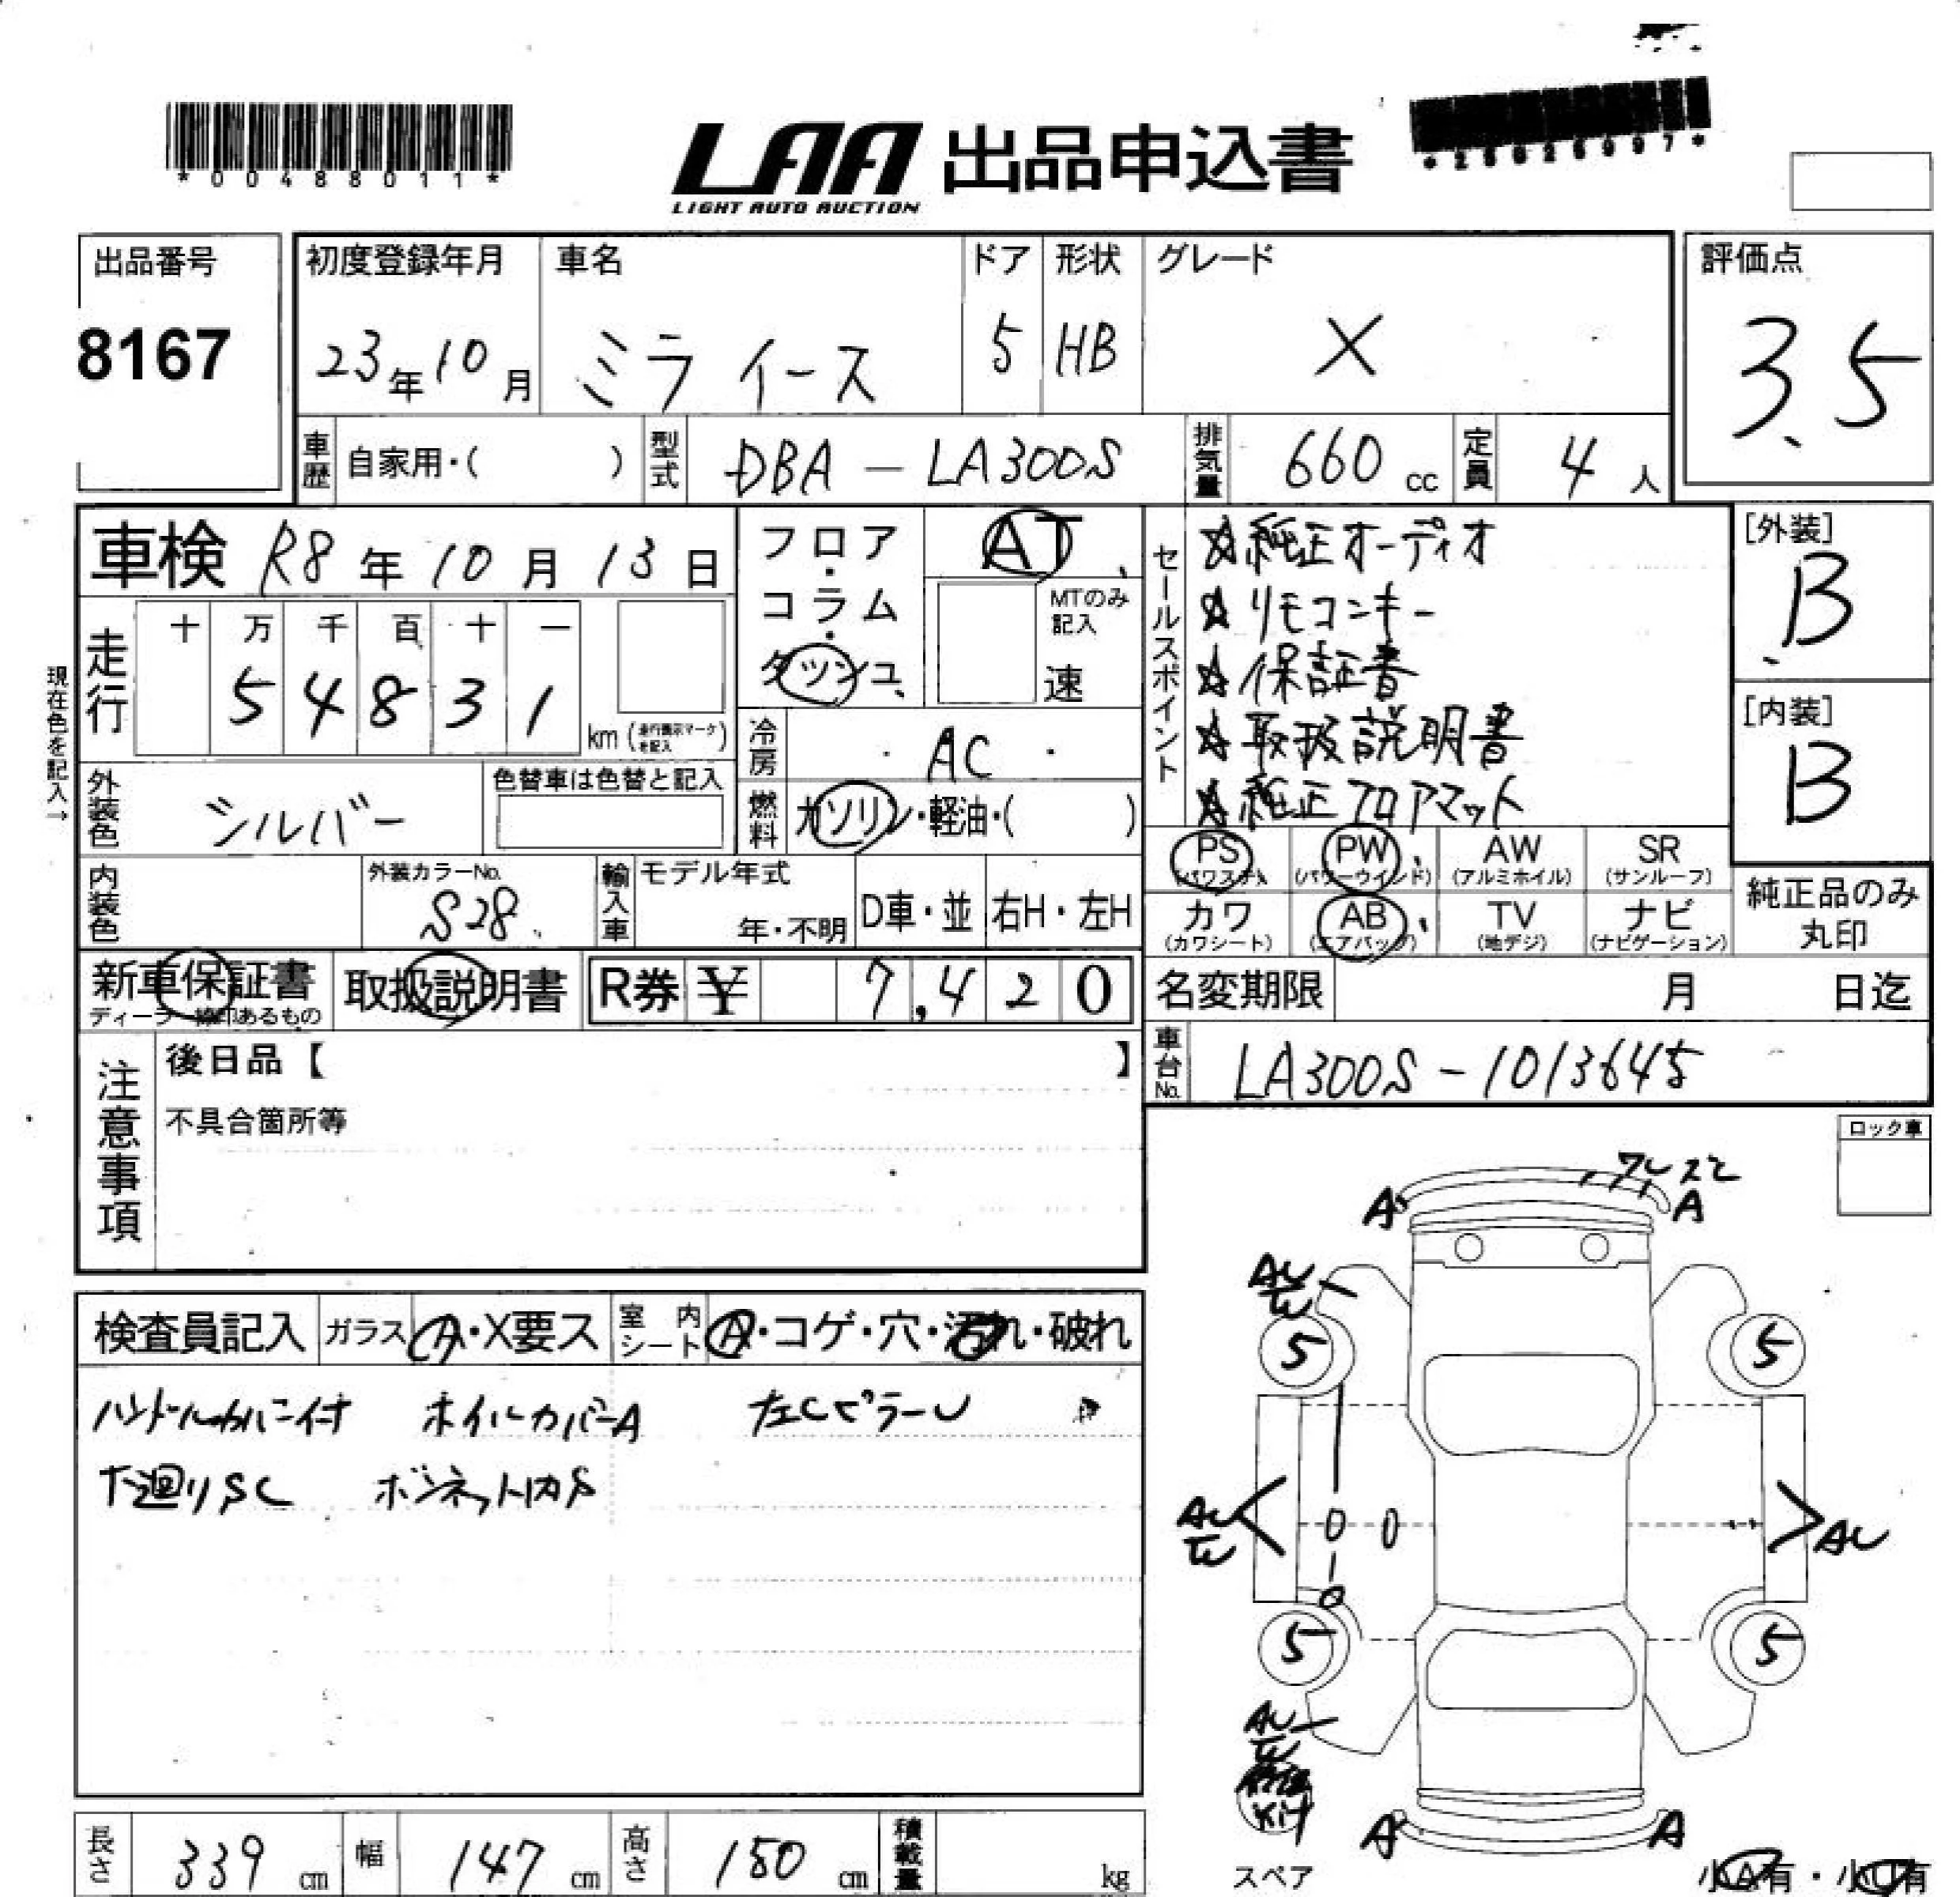 *00488011*
LAA 出品申込書
LIGHT AUTO AUCTION
出品番号
8167
初度登録年月
23年10月
車名
ミラ イース
ドア
5
形状
HB
グレード
X
評価点
3.5
車歴 自家用・( )
型式 DBA-LA300S
排気量 660 cc
定員 4 人
車検 R8年10月13日
フロア・コラム・ダッシュ
AT
MTのみ記入
速
セールスポイント
☆純正オーディオ
☆リモコンキー
☆保証書
☆取扱説明書
☆純正フロアマット
[外装]
B
[内装]
B
現在色を記入→
走行
十 万 千 百 十 一
5 4 8 3 1
km
冷房 AC
燃料 ガソリン・軽油・( )
外装色 シルバー
色替車は色替と記入
内装色
外装カラーNo.
S28
輸入車
モデル年式
年・不明
D車・並
右H・左H
PS
(パワステ)
PW
(パワーウインド)
AW
(アルミホイル)
SR
(サンルーフ)
カワ
(カワシート)
AB
(エアバック)
TV
(地デジ)
ナビ
(ナビゲーション)
純正品のみ
丸印
新車保証書
取扱説明書
R券 ¥ 7,420
名変期限 月 日迄
車台No. LA300S-1013645
注意事項
後日品【 】
不具合箇所等
ロック車
検査員記入
ガラス A・X要ス
室内シート A・コゲ・穴・汚れ・破れ
ハンドルカバー付 ホイルカバーA 左CピラーU
下廻りSC ボンネット内S
A
A
AU
5
5
AU
AU
5
5
AU
A
A
スペア
小A有・小U有
長さ 339 cm
幅 147 cm
高さ 150 cm
積載量 kg